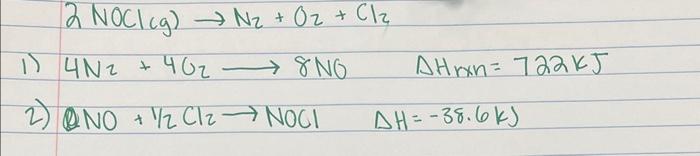 2 NOCl(g) → N₂ + O₂ + Cl₂
1) 4N₂ + 4O₂ → 8NO ΔHrxn = 722kJ
2) NO + 1/2 Cl₂ → NOCl ΔH = -38.6kJ